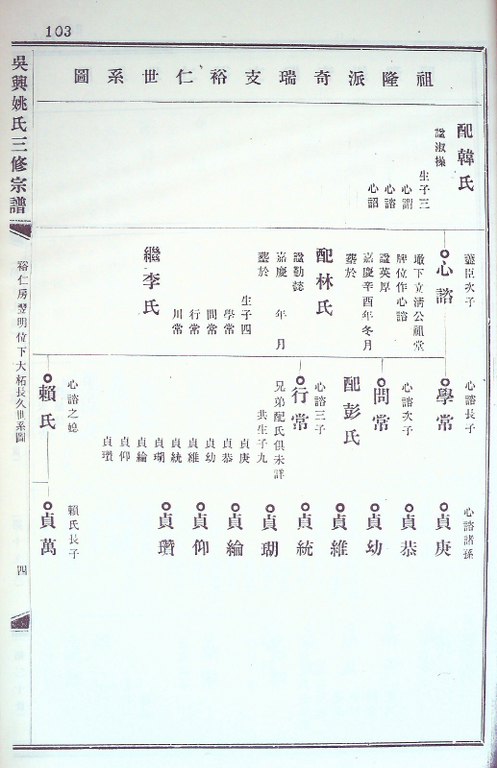 103
祖隆派奇瑞支裕仁世系圖
吳興姚氏三修宗譜
裕仁房翌明位下大柘長久世系圖
四
配韓氏
諡淑操
生子三
心諮
心詔
藎臣次子
心諮
墩下立清公祖堂
牌位作心諮
諡英厚
嘉慶辛酉年冬月
塟於
配林氏
諡勤懿
嘉慶 年 月
塟於
生子四
學常
問常
行常
川常
繼李氏
心諮長子
學常
心諮次子
問常
配彭氏
心諮三子
行常
兄弟配氏俱未詳
共生子九
貞庚
貞恭
貞幼
貞維
貞統
貞瑚
貞綸
貞仰
貞瓚
心諮之媳
賴氏
心諮諸孫
貞庚
貞恭
貞幼
貞維
貞統
貞瑚
貞綸
貞仰
貞瓚
賴氏長子
貞萬